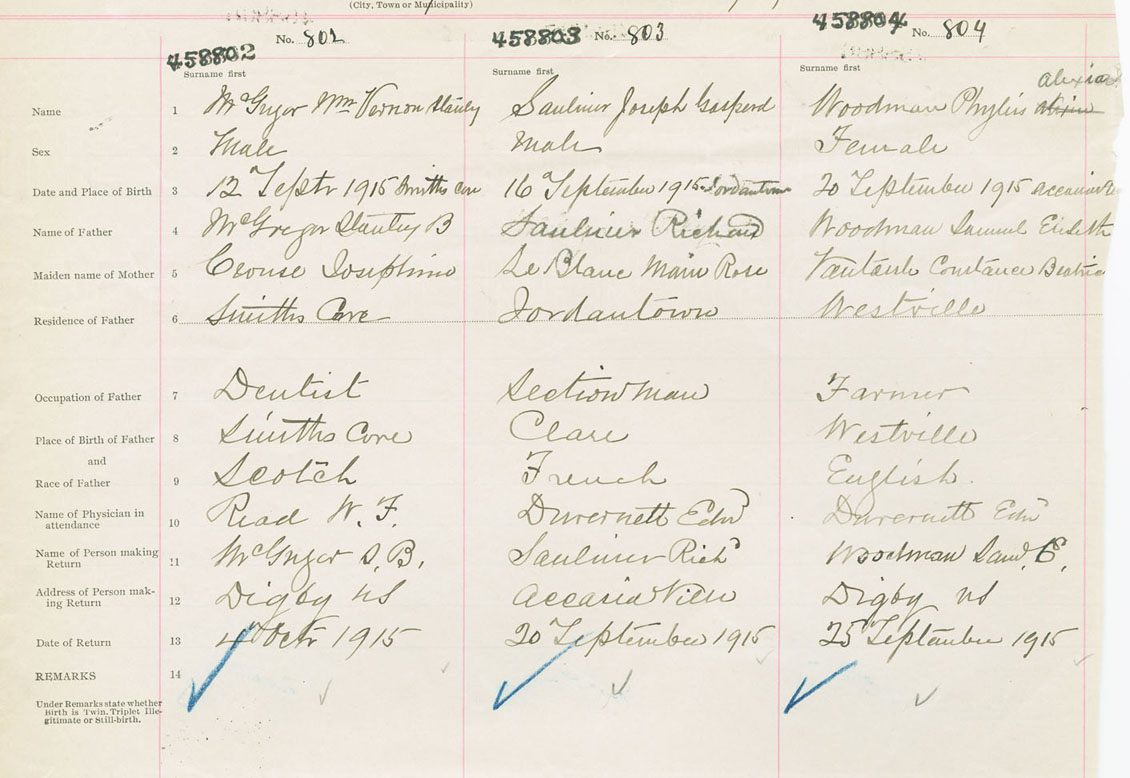 (City, Town or Municipality)
458802 No. 802 458803 No. 803 458804 No. 804
Surname first Surname first Surname first
Alexia
Name 1 McGregor Wm Vernon Stanley Saulnier Joseph Gaspard Woodman Phyllis
Sex 2 Male Male Female
Date and Place of Birth 3 12 Septr 1915 Smiths Cove 16 September 1915 Jordantown 20 September 1915
Name of Father 4 McGregor Stanley B Saulnier Richard Woodman Samuel
Maiden name of Mother 5 Crouse Josephine Le Blanc Rose Constance Beatrice
Residence of Father 6 Smiths Cove Jordantown Westville
Occupation of Father 7 Dentist Section man Farmer
Place of Birth of Father 8 Smiths Cove Clare Westville
and
Race of Father 9 Scotch French English.
Name of Physician in
attendance 10 Read W. F. Duvernett Edw Duvernett Edw
Name of Person making
Return 11 McGregor S. B. Saulnier Richd Woodman Saml. E.
Address of Person mak-
ing Return 12 Digby NS Accacia View Digby NS
Date of Return 13 4th Octr 1915 20 September 1915 25 September 1915
REMARKS 14
Under Remarks state whether
Birth is Twin, Triplet Ille-
gitimate or Still-birth.